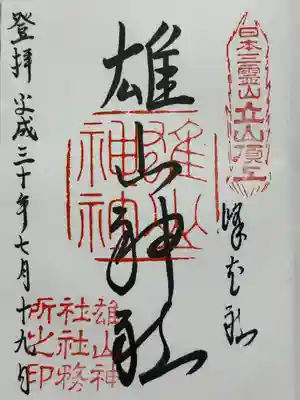 日本三霊山立山頂上
峰本社
雄山神社
雄山神神
登拝 平成三十年七月十九日
雄山神
社社務
所之印